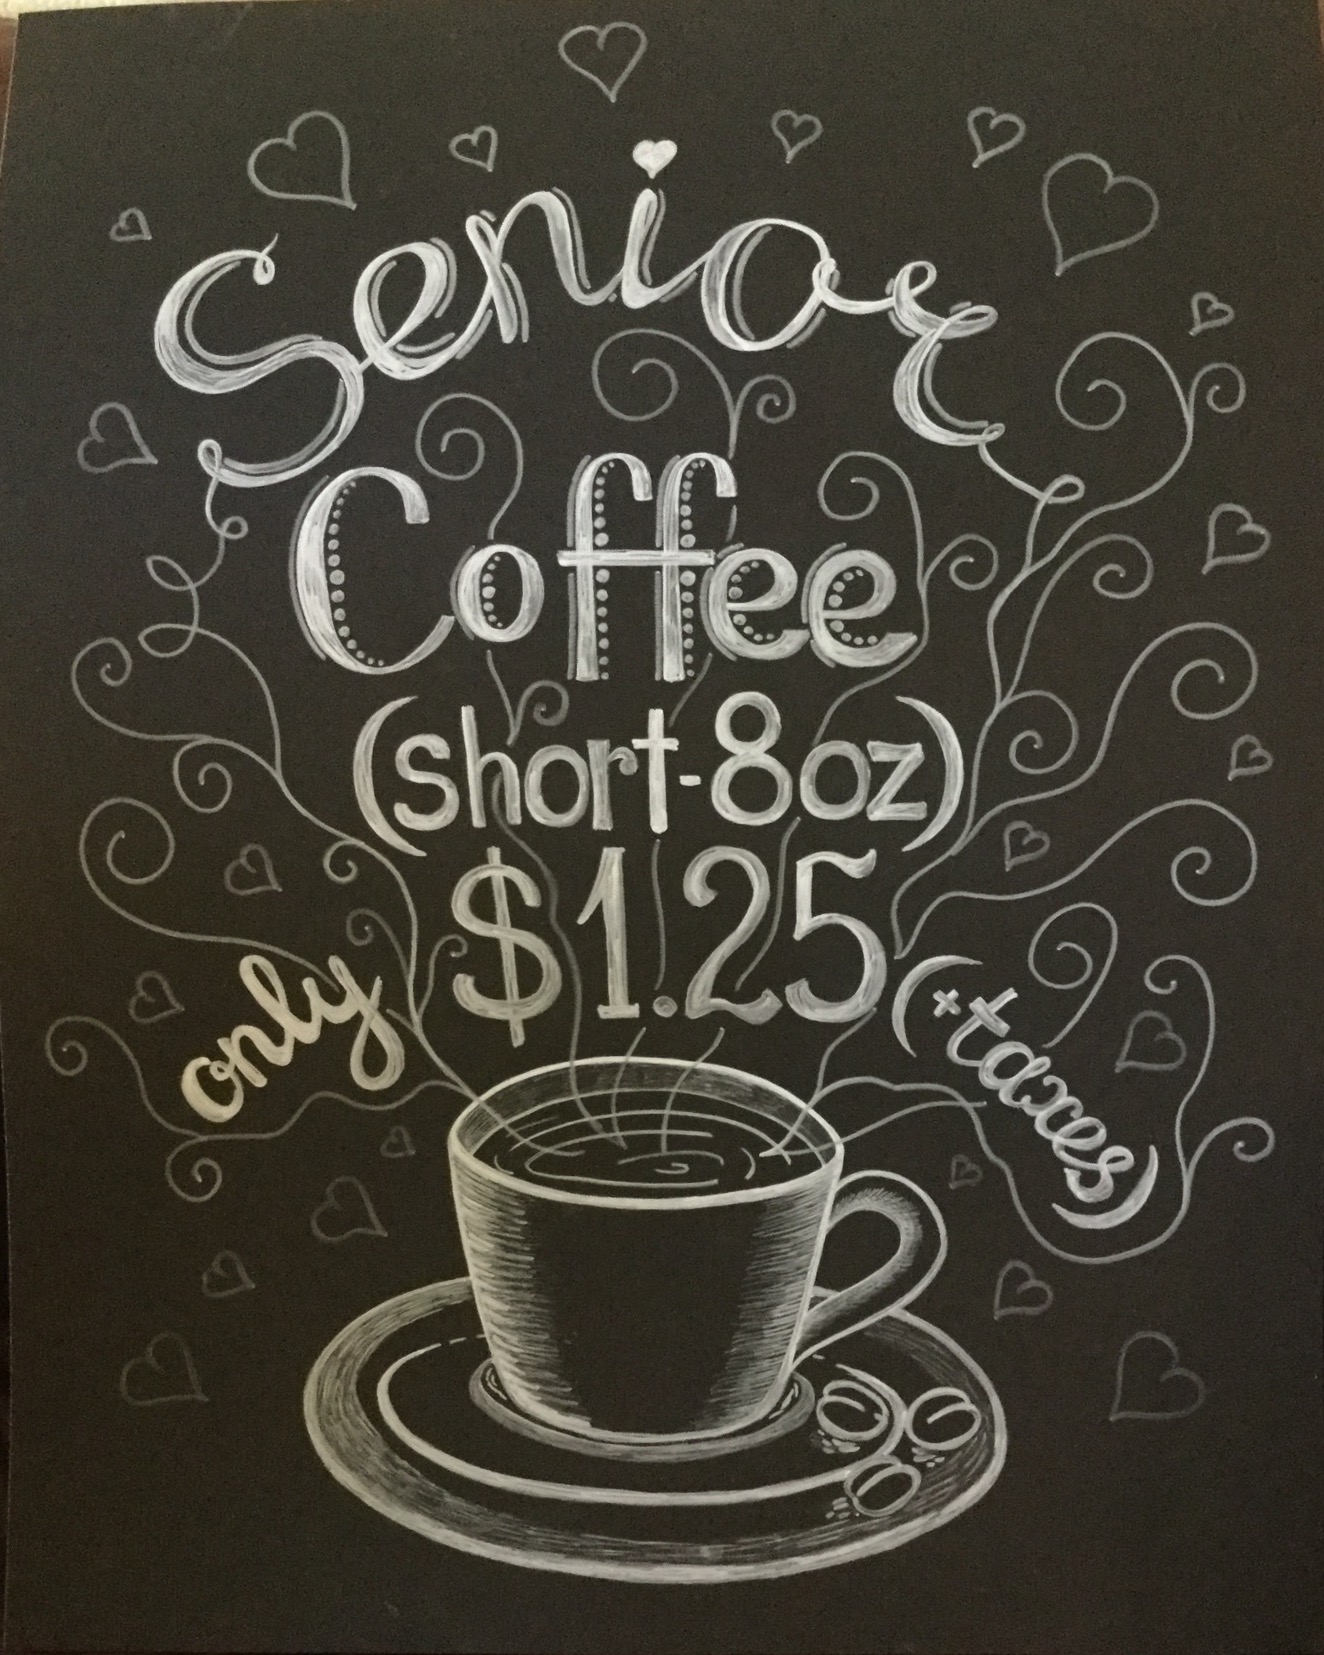 Senior
Coffee
(short-8oz)
only $1.25 (+taxes)